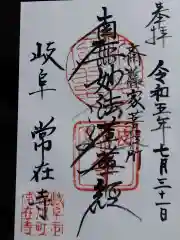 奉拝
令和五年七月三十一日
斎藤家菩提所
南無妙法蓮華経
岐阜
常在寺